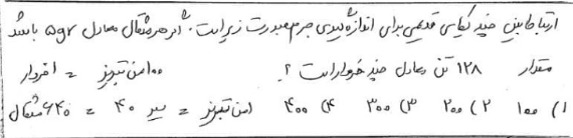 ارتباط بین چند یکای قدیمی برای اندازه گیری جرم بصورت زیر است. اگر هر مثقال معادل ۵gr باشد
مقدار ۱۲۸ تن معادل چند خروار است ؟ ۱۰۰ من تبریز = ۱ خروار
۱) ۱۰۰ ۲) ۲۰۰ ۳) ۳۰۰ ۴) ۴۰۰ ۱ من تبریز = ۴۰ سیر = ۶۴۰ مثقال